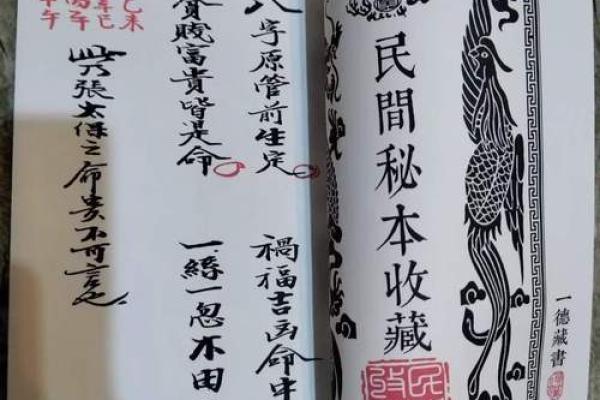 一德藏書
民間秘本收藏
八字原管前生定
禍福吉凶命中
賤富貴皆是命
一絲一忽不由
未
巳
丙午
午
此乃張太保之命貴不可言也